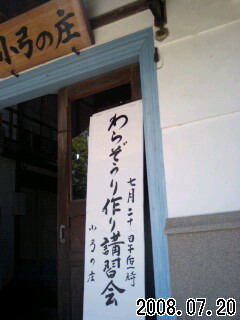 小弓の庄
七月二十日午后一時
わらぞうり作り講習会
小弓の庄
2008.07.20